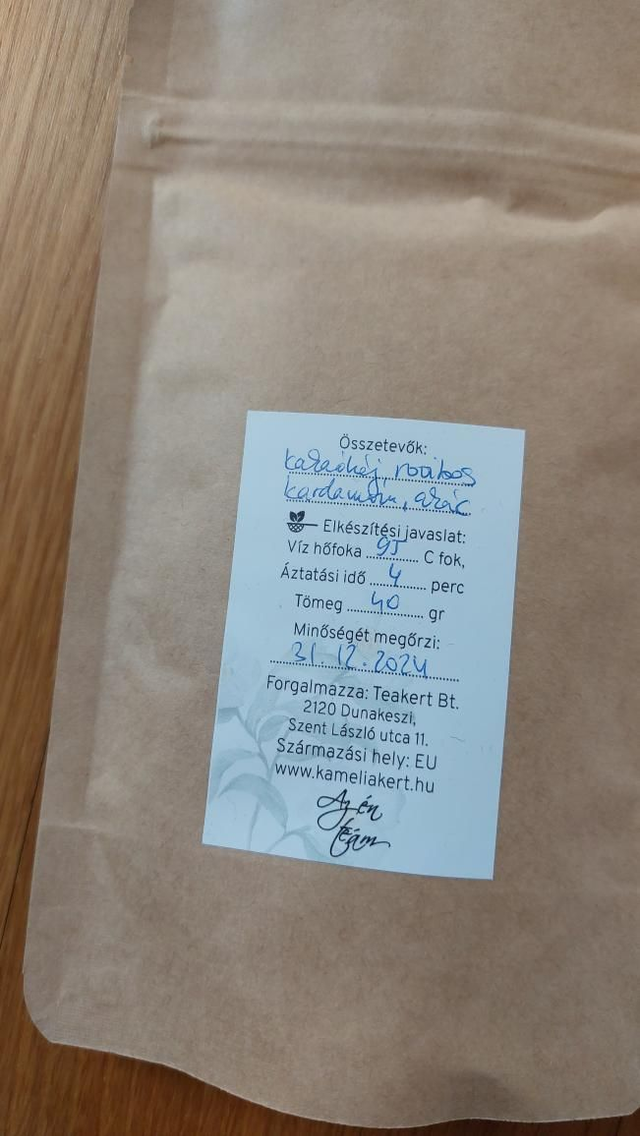 Összetevők:
kakaóhéj, rooibos
kardamom,
Elkészítési javaslat:
Víz hőfoka 95 C fok,
Áztatási idő 4 perc
Tömeg 40 gr
Minőségét megőrzi:
31.12.2024
Forgalmazza: Teakert Bt.
2120 Dunakeszi,
Szent László utca 11.
Származási hely: EU
www.kameliakert.hu
Az én
teám